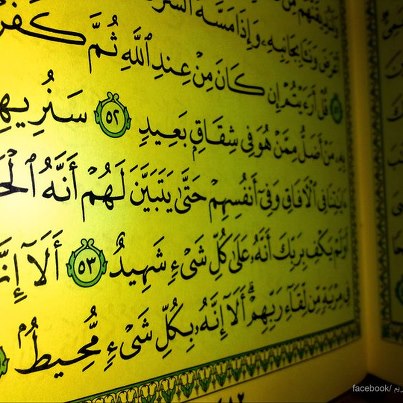 بِجَانِبِهِۦ وَإِذَا مَسَّهُ ٱلشَّرُّ
قُلْ أَرَءَيْتُمْ إِن كَانَ مِنْ عِندِ ٱللَّهِ ثُمَّ كَفَرْ
بِهِۦ مَنْ أَضَلُّ مِمَّنْ هُوَ فِى شِقَاقٍۭ بَعِيدٍ ٥٢ سَنُرِيهِ
ءَايَٰتِنَا فِى ٱلْءَافَاقِ وَفِىٓ أَنفُسِهِمْ حَتَّىٰ يَتَبَيَّنَ لَهُمْ أَنَّهُ ٱلْحَ
أَوَلَمْ يَكْفِ بِرَبِّكَ أَنَّهُۥ عَلَىٰ كُلِّ شَىْءٍ شَهِيدٌ ٥٣ أَلَآ إِنَّ
فِى مِرْيَةٍ مِّن لِّقَآءِ رَبِّهِمْ ۗ أَلَآ إِنَّهُۥ بِكُلِّ شَىْءٍ مُّحِيطٌۢ
facebook/